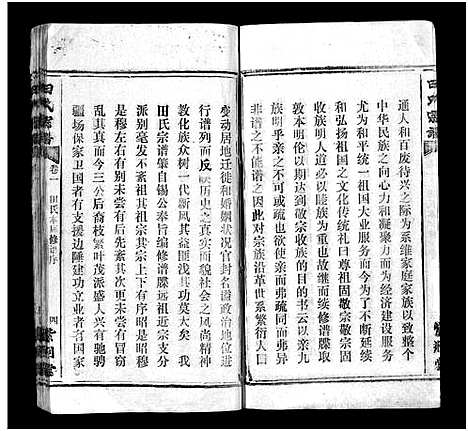 通人和百废待兴之际为系维家庭家族以致整个
中华民族之向心力和凝聚力而为经济建设服务
尤为和平统一祖国大业服务而今为了不断延续
和弘扬祖国之文化传统礼曰尊祖固敬宗敬宗固
收族明人道必以睦族为重也故而继续修谱牒取
敦本明伦以期达到敬宗收族的目的书云以亲九
族明乎亲之不可或疏也欲亲而弗疏同而弗异
非谱之不能谱之因此对宗族沿革世系繁衍人口
变动居地迁徙和婚姻状况官封名谥政治地位进
行谱列而反映历史之真实而貌社会之风尚精神
教化族众树一代新风其益匪浅其功莫大矣 我
田氏宗谱肇自锡公奉旨编修谱牒远祖近宗支分
派别毫发不紊祖其祖宗其宗上下有序昭是昭穆
是穆左右有别未尝有以乱其真也更未尝有冒窃
乱其真而今三公后裔枝繁叶茂派盛人兴有驰骋
疆场保家卫国者有支援边陲建功立业者名国家
田氏宗谱
卷一
田氏
修谱序
四
紫荆堂